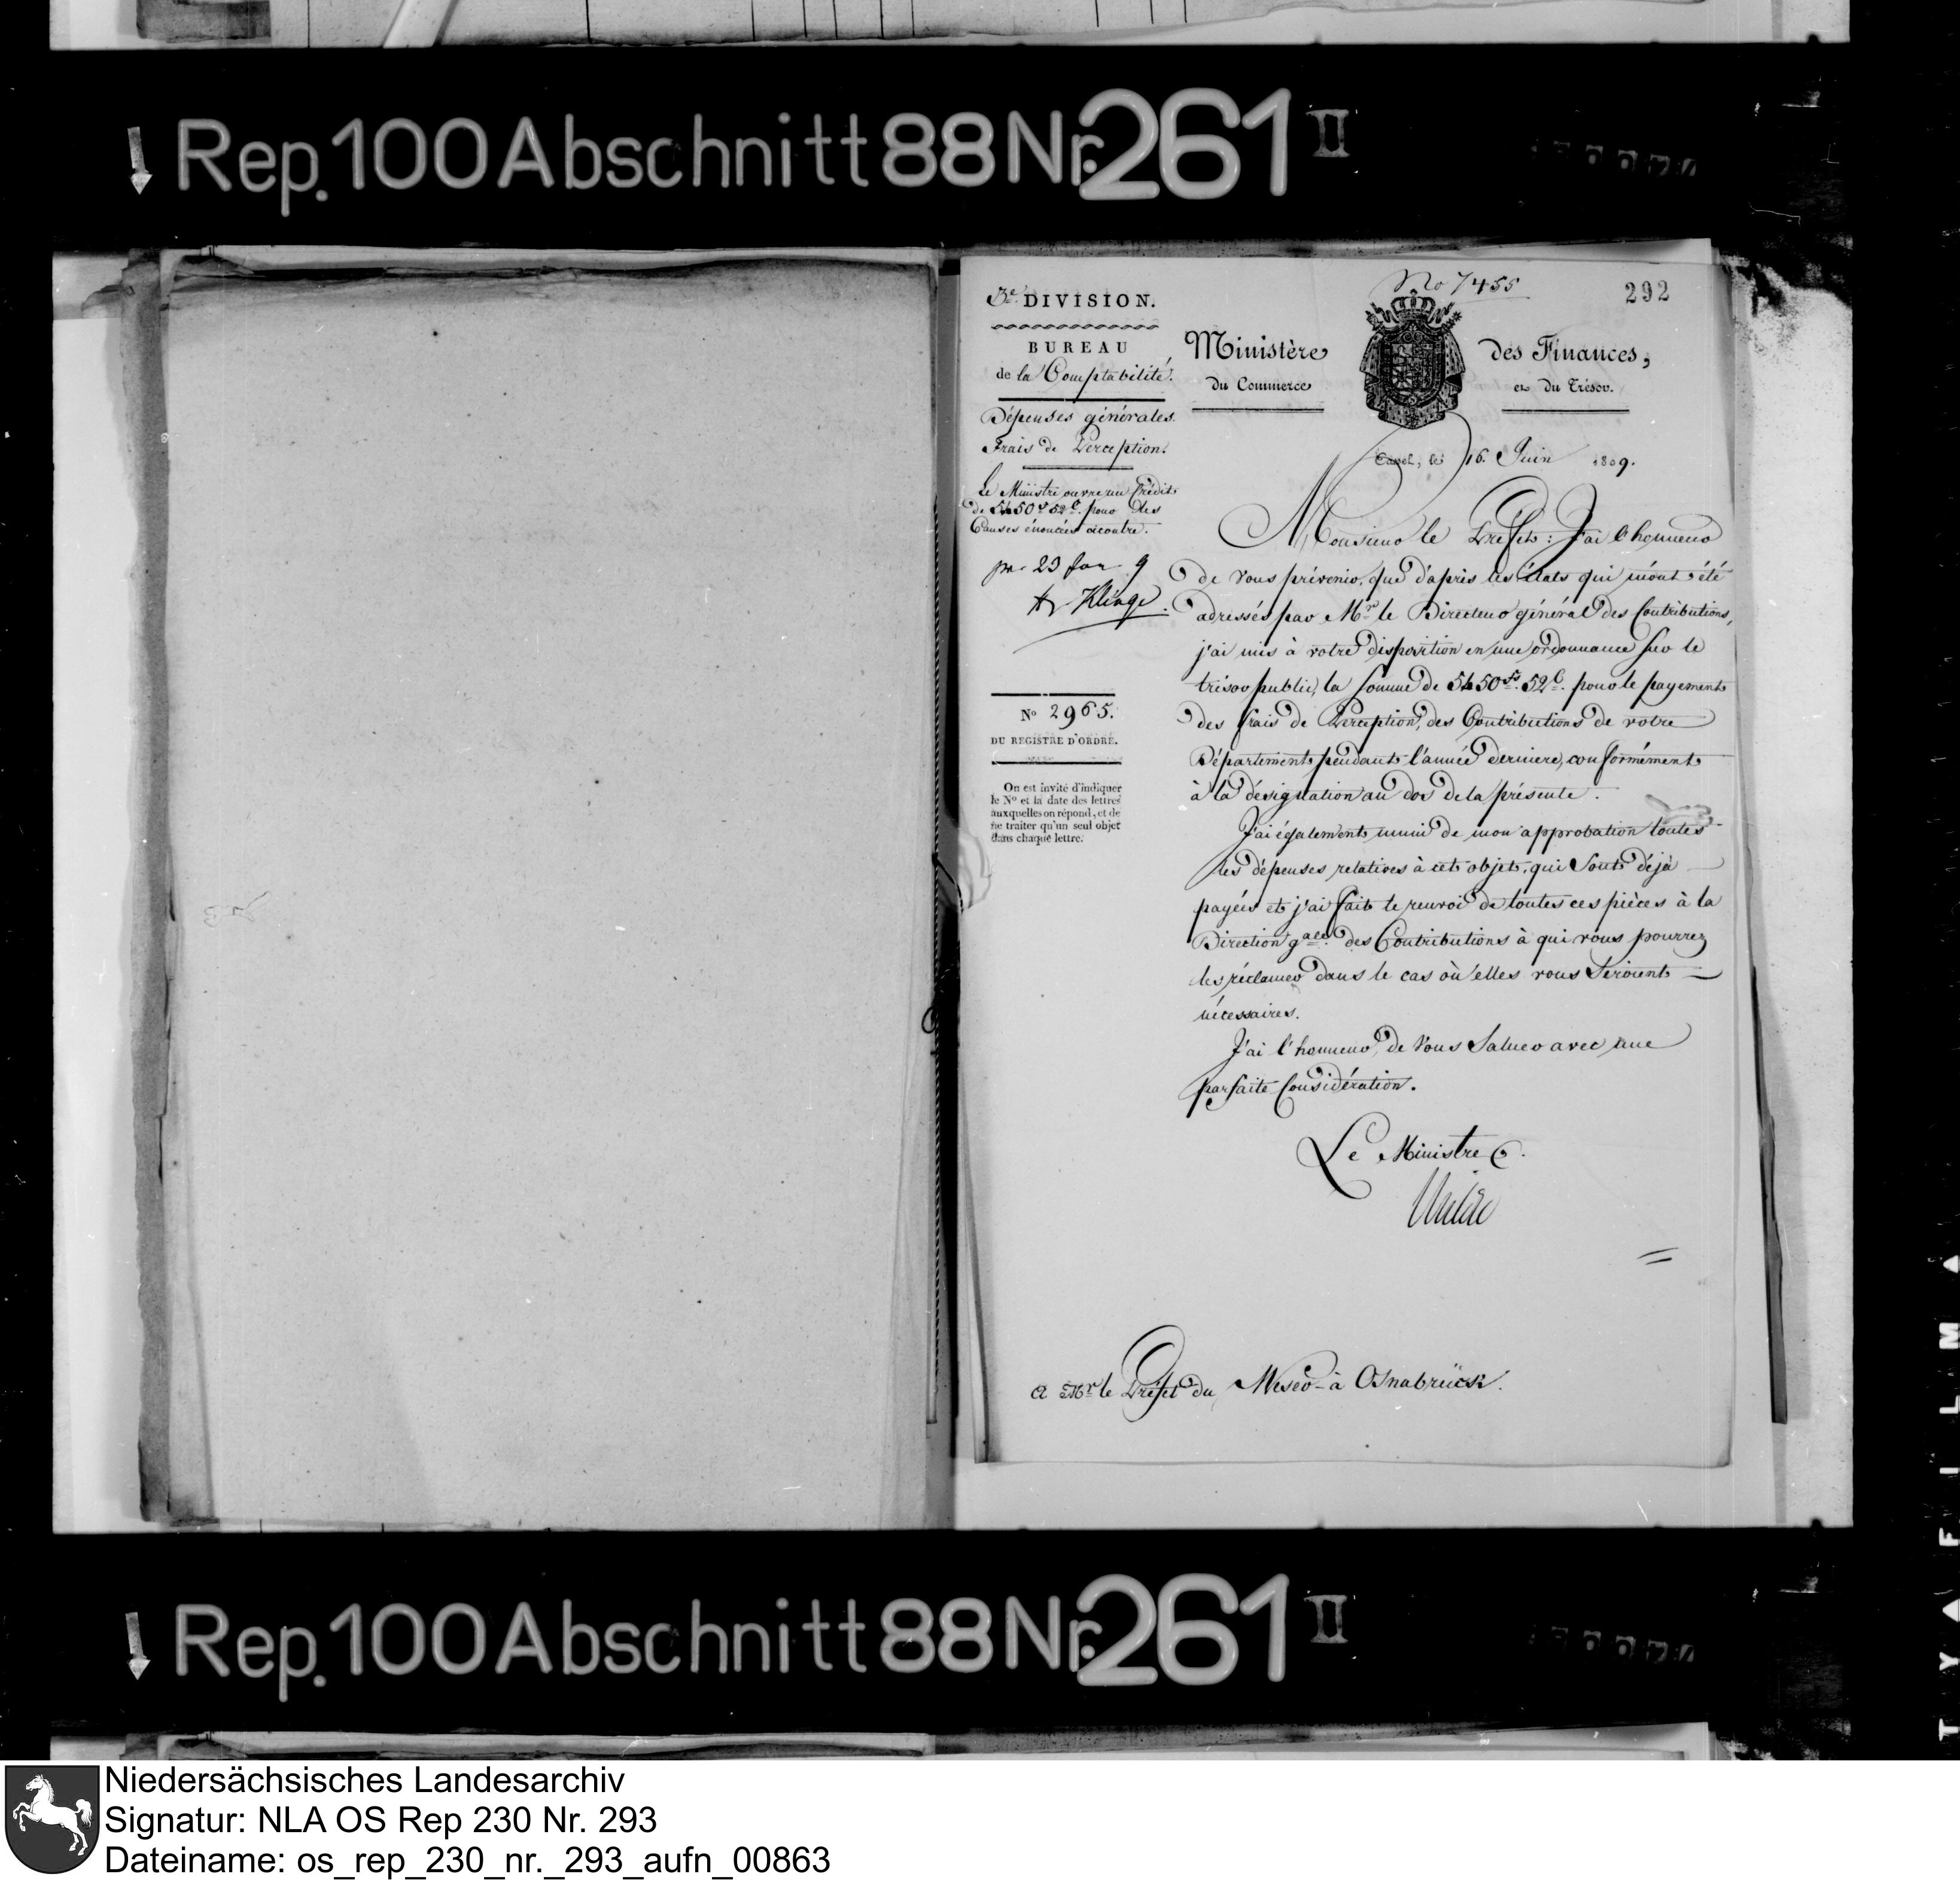 Rep. 100 Abschnitt 88 Nr. 261 II
No 7455
292
3e. DIVISION.
BUREAU
de la Comptabilité.
Dépenses générales.
Frais de Perception.
Le Ministre ouvre un Crédit
de 5450 fs 52 c. pour des
Causes énoncées ci contre.
pr. 23 Jun 9
Klinge.
No 2965.
DU REGISTRE D'ORDRE.
On est invité d'indiquer
le No et la date des lettres
auxquelles on répond, et de
ne traiter qu'un seul objet
dans chaque lettre.
Ministère des Finances,
du Commerce et du Trésor.
Cassel, le 16. Juin 1809.
Monsieur le Préfet: J'ai l'honneur
de vous prévenir, que d'après les états qui m'ont été
adressés par Mr. le Directeur général des Contributions,
j'ai mis à votre disposition en une ordonnance sur le
trésor public, la somme de 5450 fs. 52 c. pour le payement
des frais de Perception, des Contributions de votre
Département pendant l'année derniere, conformément
à la désignation au dos de la présente.
J'ai également muni de mon approbation toutes
les dépenses relatives à cet objet, qui sont déjà
payées et j'ai fait le renvoi de toutes ces pièces à la
Direction gale. des Contributions à qui vous pourrez
les réclamer dans le cas où elles vous seroient
nécessaires.
J'ai l'honneur, de vous saluer avec une
parfaite Considération.
Le Ministre
A Mr. le Préfet du Weser à Osnabrück.
Rep. 100 Abschnitt 88 Nr. 261 II
Niedersächsisches Landesarchiv
Signatur: NLA OS Rep 230 Nr. 293
Dateiname: os_rep_230_nr._293_aufn_00863